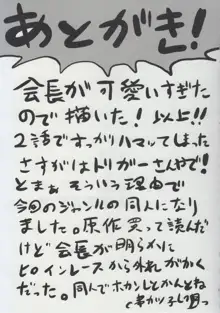 あとがき!
会長が可愛いすぎた
ので描いた!以上!!
2話ですっかりハマッてしまった
さすがはトリガーさんやで!
とまぁそういう理由で
今回のジャンルの同人になり
ました。原作買って読んだ
けど会長が明らかに
ヒロインレースから外れがかく
だった。同人でホカンしてかんとね